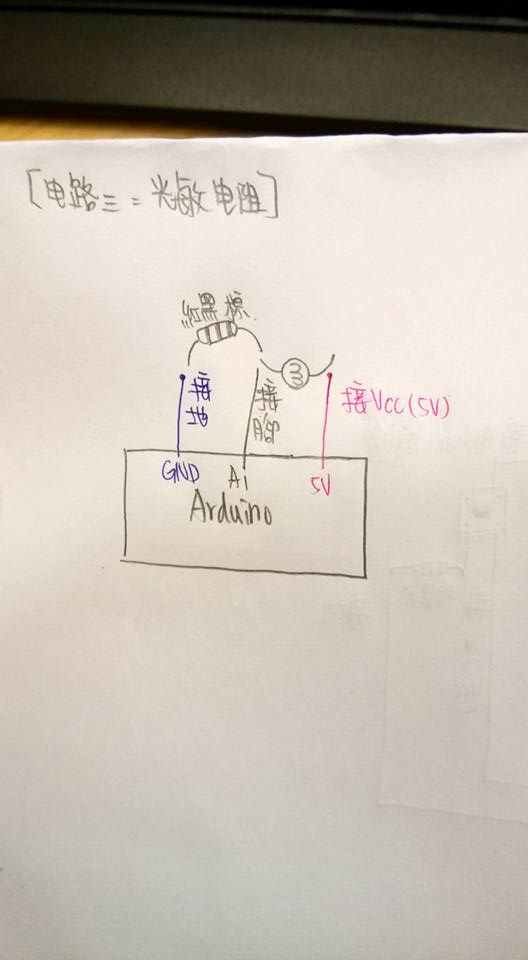 [电路三：光敏电阻]
紅黑棕
接地
接腳
接Vcc(5V)
GND
A1
5V
Arduino